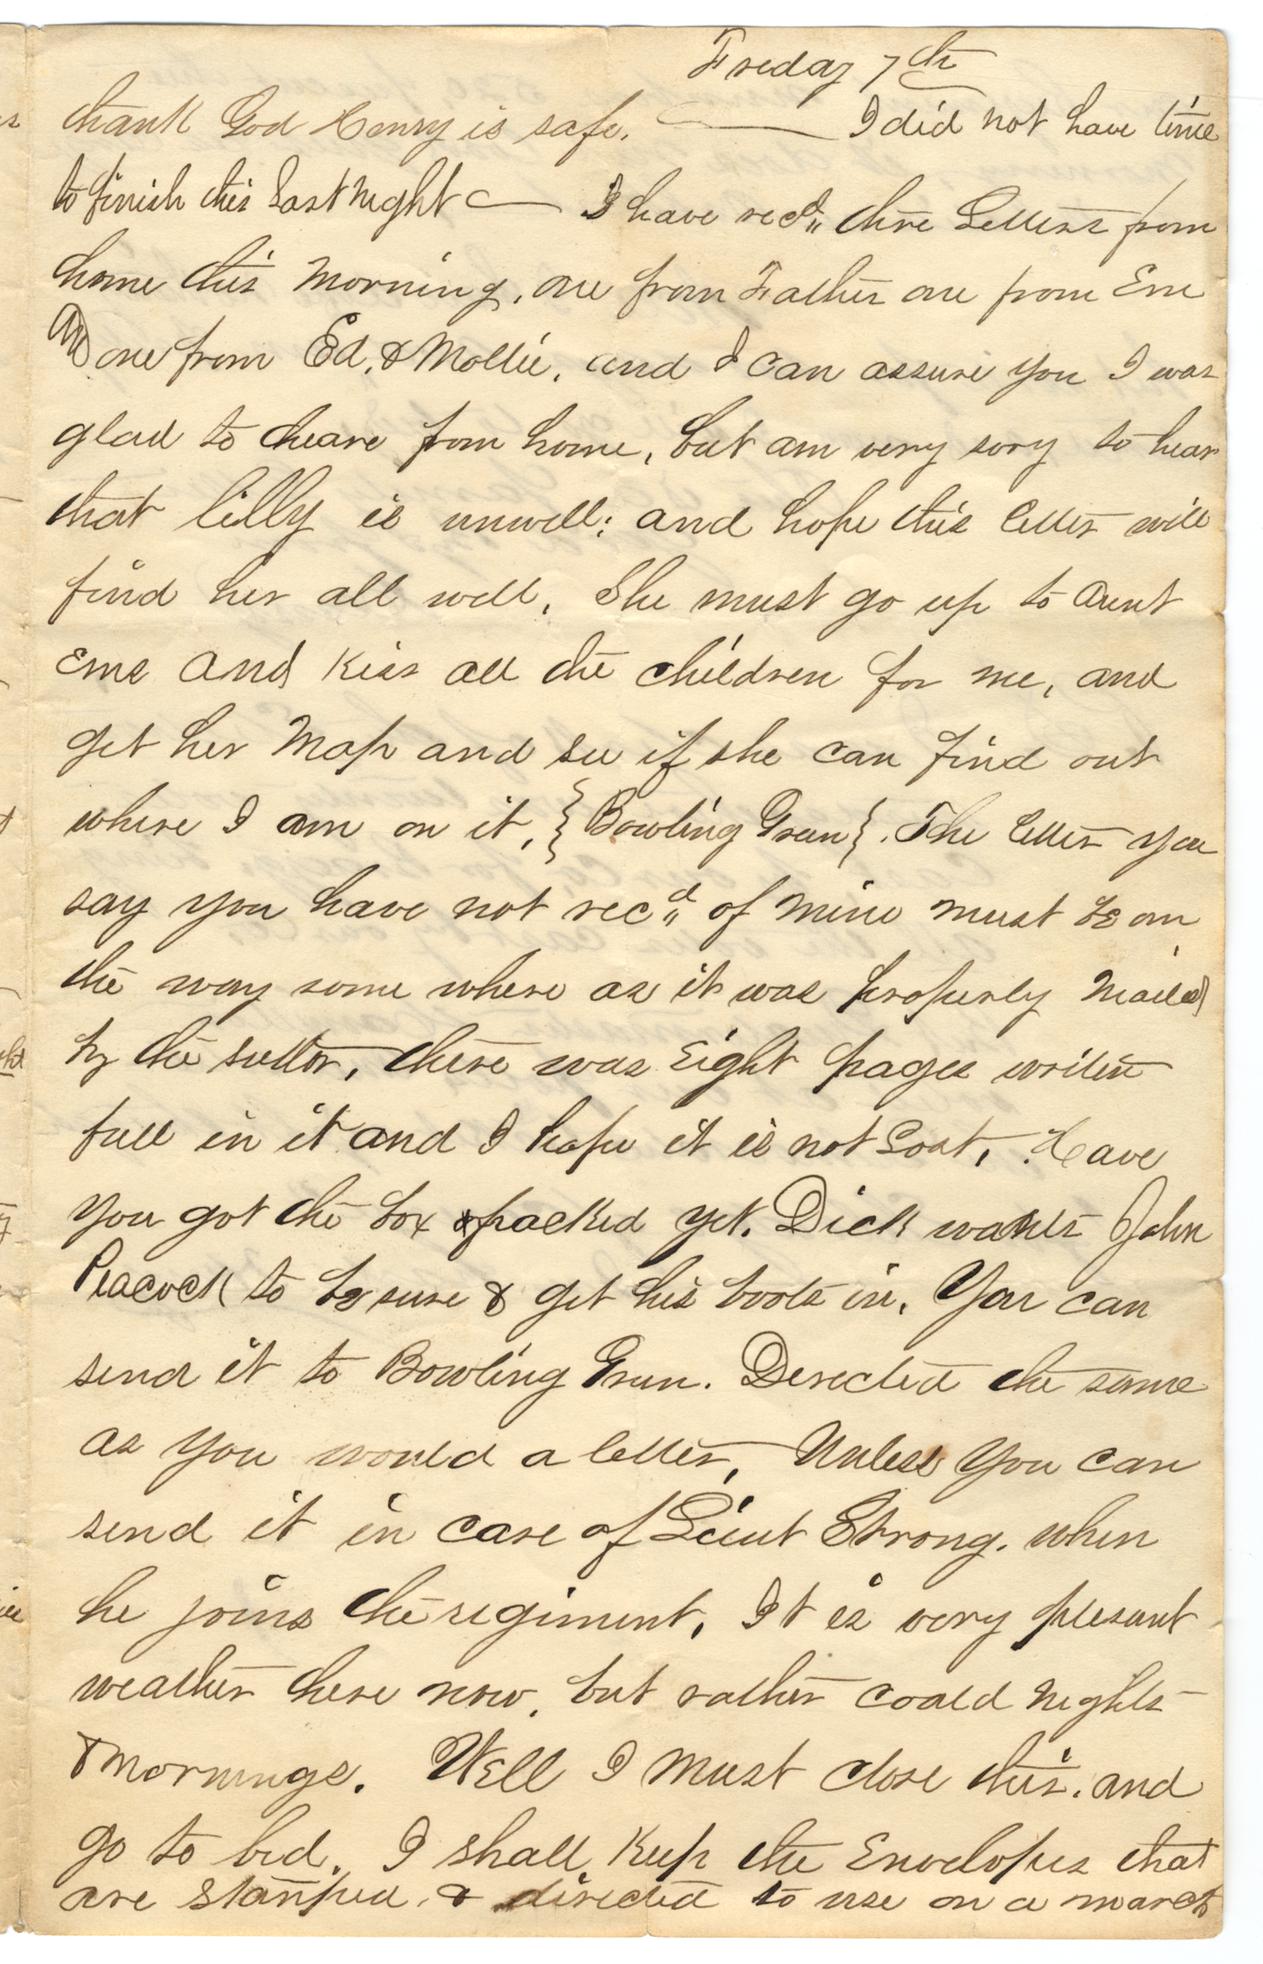 Friday 7th
thank God Henry is safe. — I did not have time
to finish this last night — I have recd,, thre Letters from
home this Morning, one from Father one from Em
And one from Ed. & Mollie, and I can assure you I was
glad to heare from home, but am very sory to hear
that lilly is unwell; and hope this letter will
find her all well, She must go up to Aunt
Eme and Kiss all the children for me, and
get her Map and see if she can find out
where I am on it, {Bowling Green}. The letter you
say you have not recd,, of mine must be on
the way some where as it was properly Mailed
by the sutler, there was Eight pages writen
full in it and I hope it is not Lost, Have
you got the box packed yet. Dick wants John
Peacock to be sure & get his boots in. You can
send it to Bowling Green. Derected the same
as you would a letter, Unless you can
send it in care of Leiut Strong. when
he joins the regiment, It is very plesant
weather here now, but rather coald nights
& mornings. Well I must close this. and
go to bed. I shall Keep the Envelopes that
are stamped & directed to use on a march